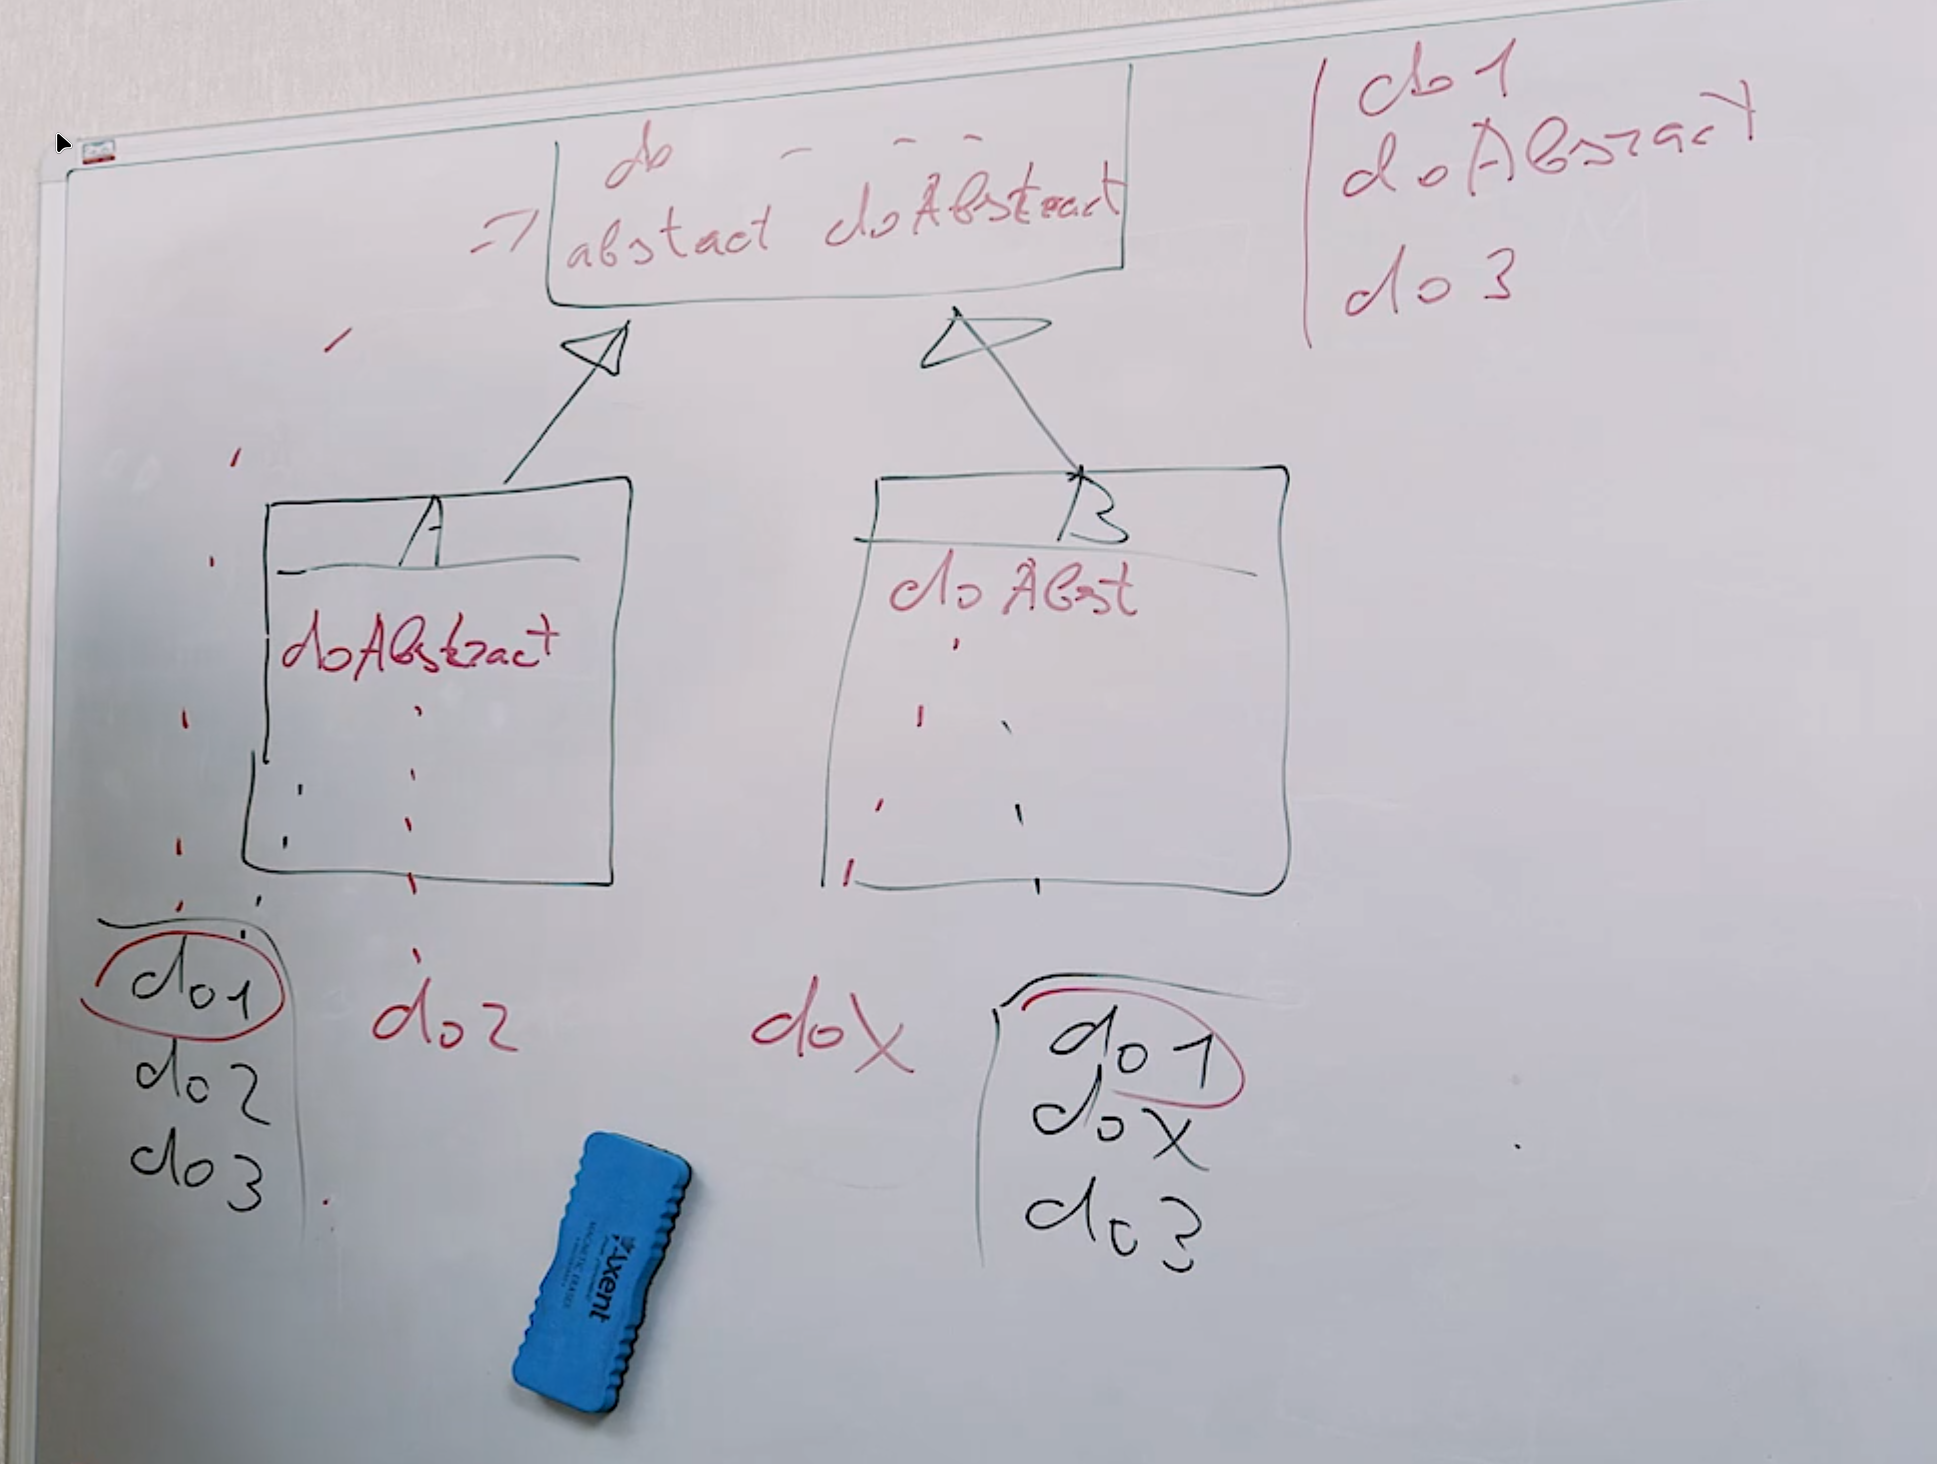 do - - -
=> abstact doAbstract
do1
doAbstract
do 3
A
doAbstract
B
do Abst
do1
do2
do3
do2
doX
do1
doX
do3
Axent
MAGNETIC ERASER